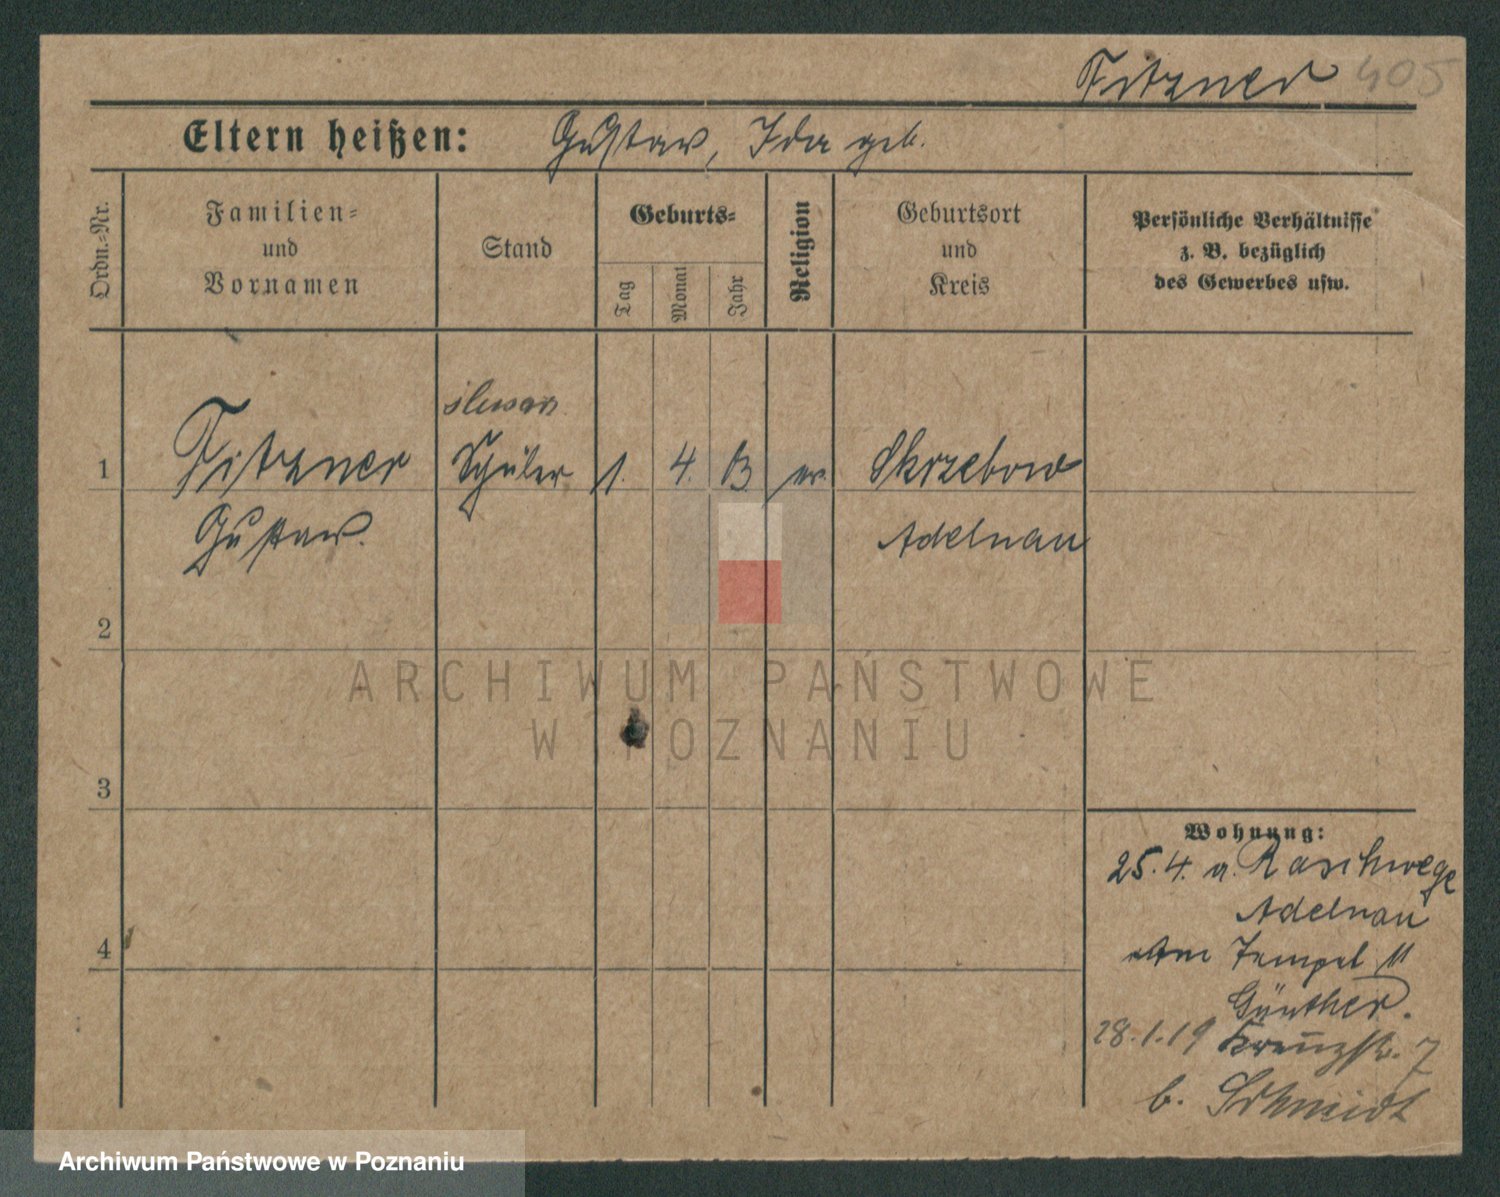 Fitzner 405
Eltern heißen: Gustav, Ida geb.
Ordn.=Nr.
Familien=
und
Vornamen
Stand
Geburts=
Tag
Monat
Jahr
Religion
Geburtsort
und
Kreis
Persönliche Verhältnisse
z. B. bezüglich
des Gewerbes usw.
1 Fitzner Schüler 1. 4. 13 ev. Skrzebow
Gustav. Adelnau
2
3
4
Wohnung:
25. 4. a. Raschwege
Adelnau
Am Tempel 11
Günther.
28.1.19 Kreuzstr. 7
b. Schmidt
ARCHIWUM PAŃSTWOWE
W POZNANIU
Archiwum Państwowe w Poznaniu